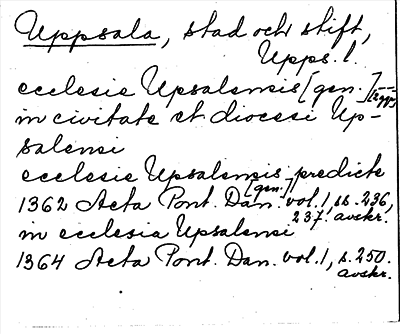 Uppsala, stad och stift,
Upps. l.
ecclesie Upsalensis [gen.] --
in civitate et diocesi Up-
salensi
ecclesie Upsalensis [gen.] predicte
1362 Acta Pont. Dan. vol. 1, ss. 236,
237. avskr.
in ecclesia Upsalensi
1364 Acta Pont. Dan. vol. 1, s. 250.
avskr.